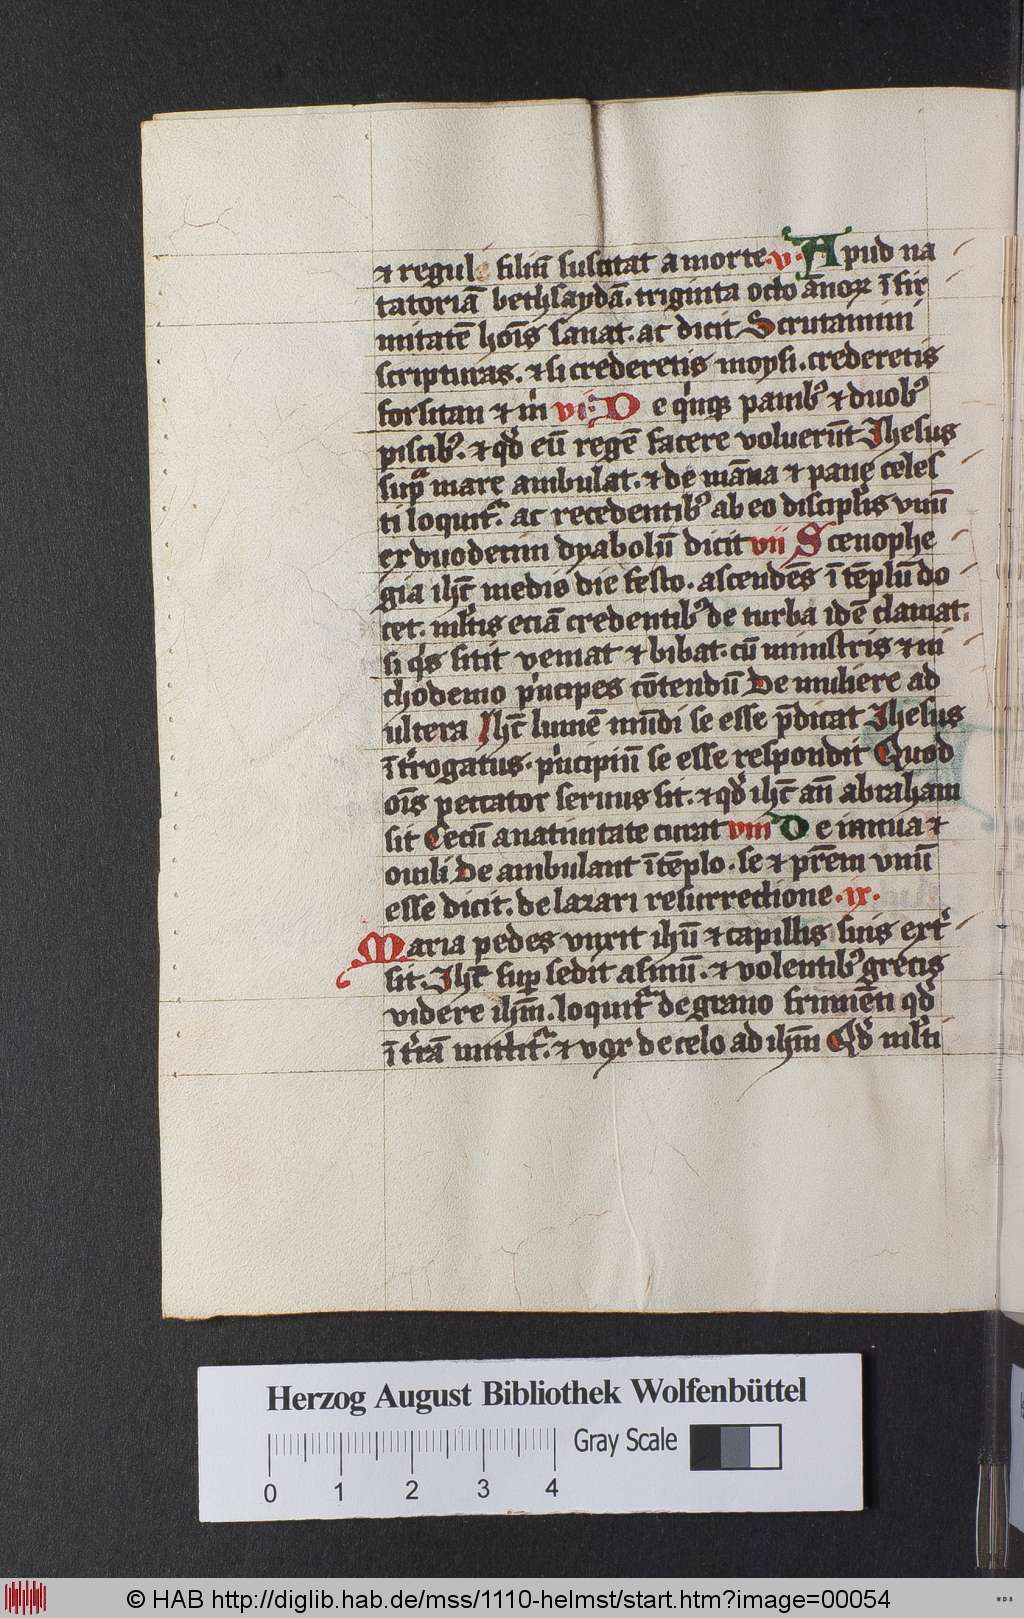 ⁊ regul filiū suscitat a morte · v · Apud na
tatoriā bethsaydā. triginta octo ānoꝝ ī fir
mitatē hoīs sanat. ac dicit Scrutamini
scripturas. ⁊ si crederetis moysi. crederetis
forsitan ⁊ mͥ vi De qͥnqꝫ panibꝰ ⁊ duobꝰ
piscibꝰ. ⁊ qđ eū regē facere voluerūt Jhesus
supᵃ mare ambulat. ⁊ de māna ⁊ pane celes
ti loquitᷣ. ac recedentibꝰ ab eo discipl̓is vnū
ex duodecim dyabolū dicit vii Scenophe
gia ihc̄ medio die festo. ascendēs ī tēplū do
cet. ml̓tis eciā credentibꝰ de turba idē clamat.
si qͥs sitit veniat ⁊ bibat. cū ministris ⁊ ni
chodemo pͥncipes cōtendū De muliere ad
ultera Jhc̄ lumē mūdi se esse p̄dicat Jhesus
īt̓rogatus. pͥncipiū se esse respondit Quod
oīs peccator seruus sit. ⁊ qđ ihc̄ an̄ abraham
sit Cecū a natiuitate curat viii De ianua ⁊
ouili De ambulant ī tēplo. se ⁊ pr̄em vnū
esse dicit. de lazari resurrectione · ix ·
Maria pedes vnxit ihū ⁊ capillis suis ext̓
sit. Jhc̄ suꝑ sedit asinū. ⁊ volentibꝰ grecis
videre ihm̄. loquitᷣ de grano frumēti qđ
ī t̓rā mittitᷣ. ⁊ vox de celo ad ihm̄ Qđ ml̓ti
Herzog August Bibliothek Wolfenbüttel
Gray Scale
0 1 2 3 4
© HAB http://diglib.hab.de/mss/1110-helmst/start.htm?image=00054